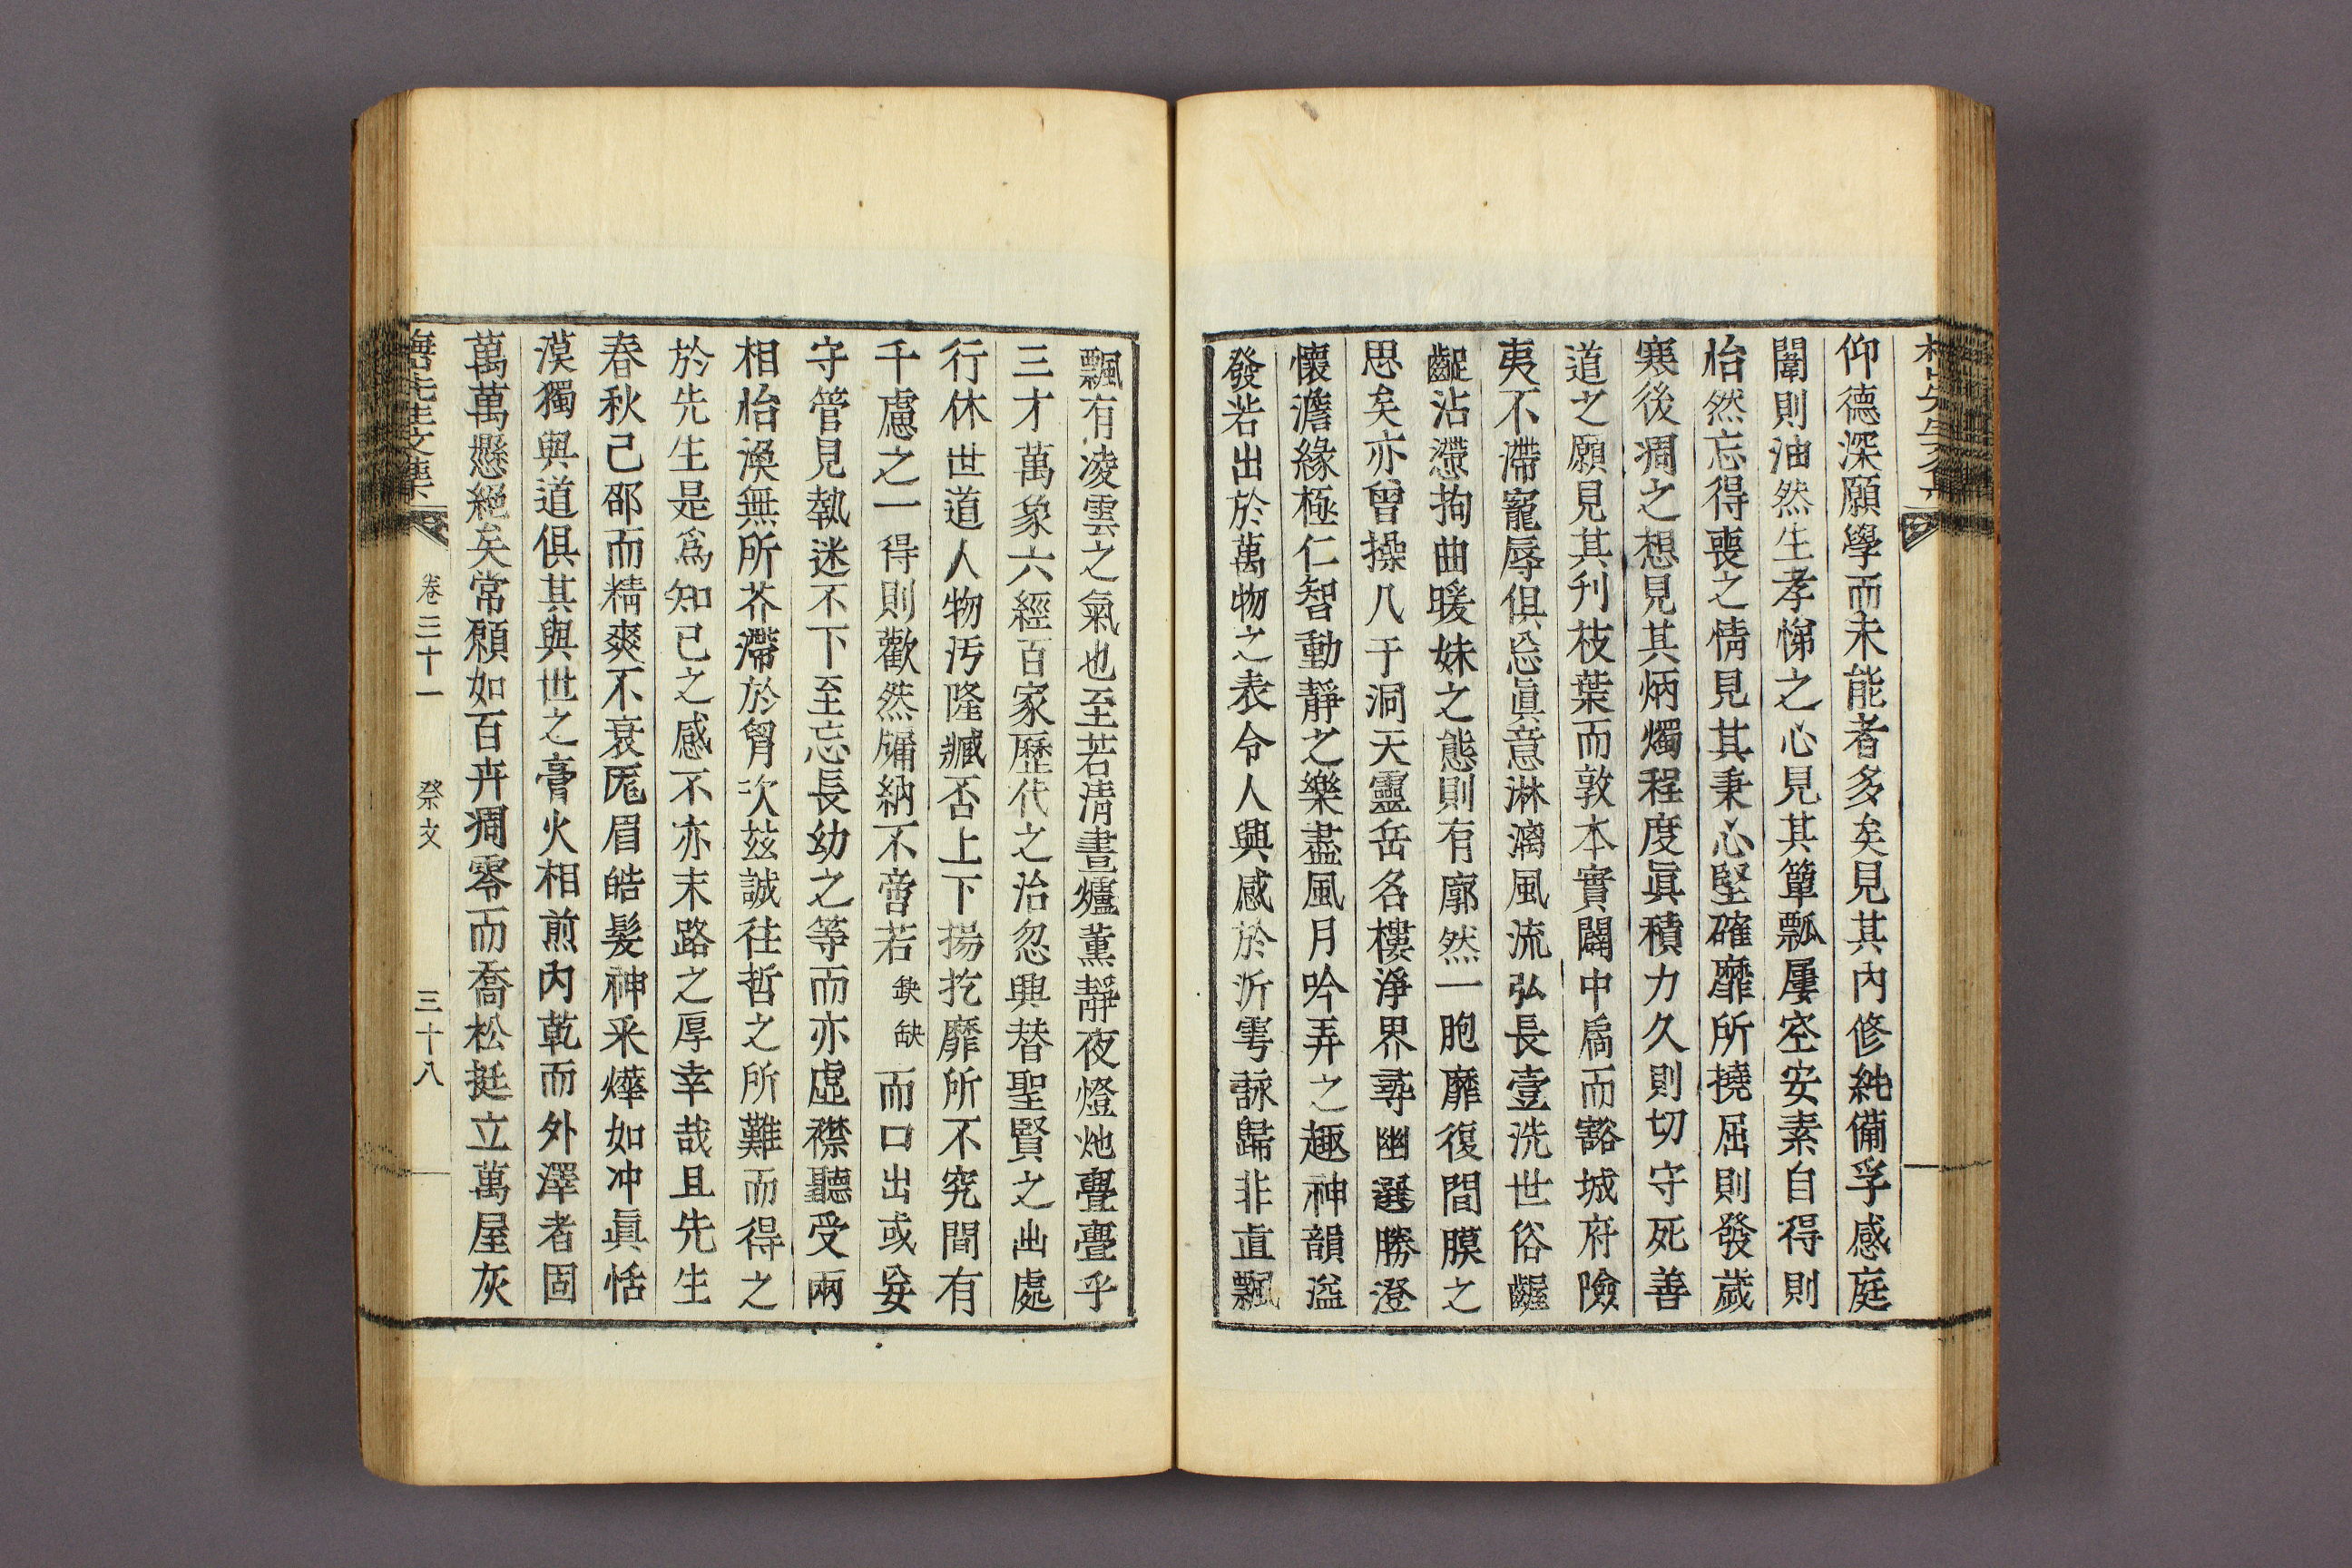 仰德深願學而未能者多矣見其內修純備孚感庭
闈則油然生孝悌之心見其簞瓢屢空安素自得則
怡然忘得喪之情見其秉心堅確靡所撓屈則發歲
寒後凋之想見其炳燭程度眞積力久則切守死善
道之願見其刋枝葉而敦本實闢中扃而豁城府險
夷不滯寵辱俱忘眞意淋漓風流弘長壹洗世俗齷
齪沾滯拘曲暖姝之態則有廓然一胞靡復間膜之
思矣亦曾操几于洞天靈岳名樓淨界尋幽選勝澄
懷澹緣極仁智動靜之樂盡風月吟弄之趣神韻溢
發若出於萬物之表令人興感於沂雩詠歸非直飄
飄有凌雲之氣也至若淸晝爐薰靜夜燈灺亹亹乎
三才萬象六經百家歷代之治忽興替聖賢之出處
行休世道人物汚隆臧否上下揚扢靡所不究間有
千慮之一得則歡然牖納不啻若缺缺而口出或妄
守管見執迷不下至忘長幼之等而亦虛襟聽受兩
相怡渙無所芥滯於胷次玆誠往哲之所難而得之
於先生是爲知己之感不亦末路之厚幸哉且先生
春秋已卲而精爽不衰厖眉皓髮神采燁如冲眞恬
漠獨與道俱其與世之膏火相煎內乾而外澤者固
萬萬懸絕矣常願如百卉凋零而喬松挺立萬屋灰
先生文集 卷三十一 祭文 三十八